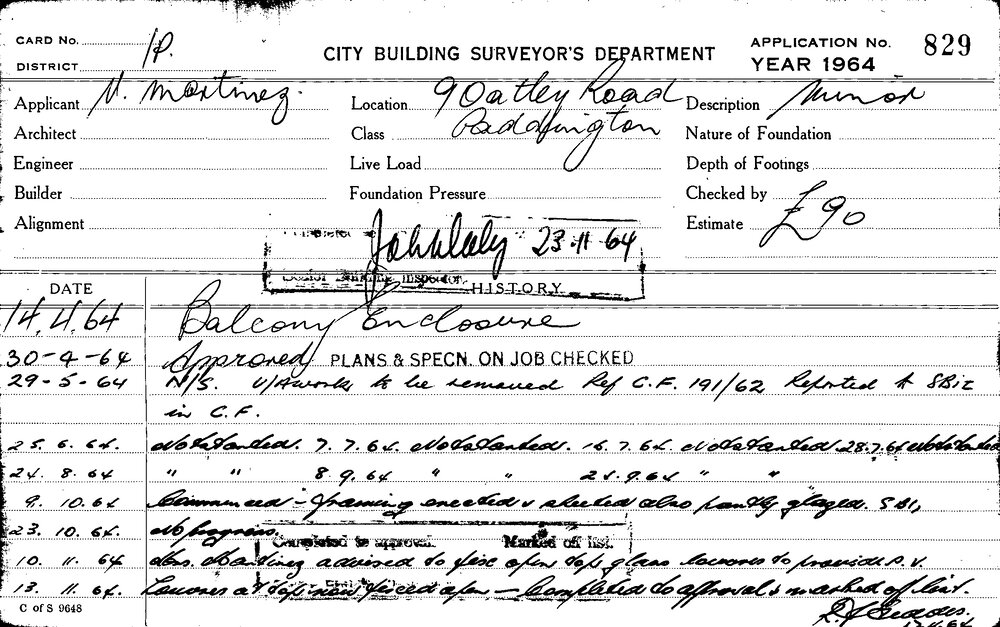 CARD No. 1P. CITY BUILDING SURVEYOR'S DEPARTMENT APPLICATION No. 829
DISTRICT YEAR 1964
Applicant V. Martinez. Location 9 Oatley Road Description Minor
Architect Class Paddington Nature of Foundation
Engineer Live Load Depth of Footings
Builder Foundation Pressure Checked by
Alignment Estimate £90
23.11.64
Inspector
DATE HISTORY
14.4.64 Balcony Enclosure
30-4-64 Approved PLANS & SPECN. ON JOB CHECKED
29-5-64 N/S. U/A work to be removed Ref C.F. 191/62 Reported to SBI2
in C.F.
25.6.64. Not started. 7.7.64. Not started. 16.7.64. Not started. 28.7.64 Not started
24.8.64 " " 8.9.64 " " 24.9.64 " "
9.10.64 Commenced - framing erected & sheeted also partly glazed. SBI,
23.10.64. No progress.
Completed to approval. Marked off list.
10.11.64 Mrs. Martinez advised to fix open top glass louvres to provide P.V.
13.11.64. Louvres at top now fixed open - Completed to approval & marked off list.
C of S 9648